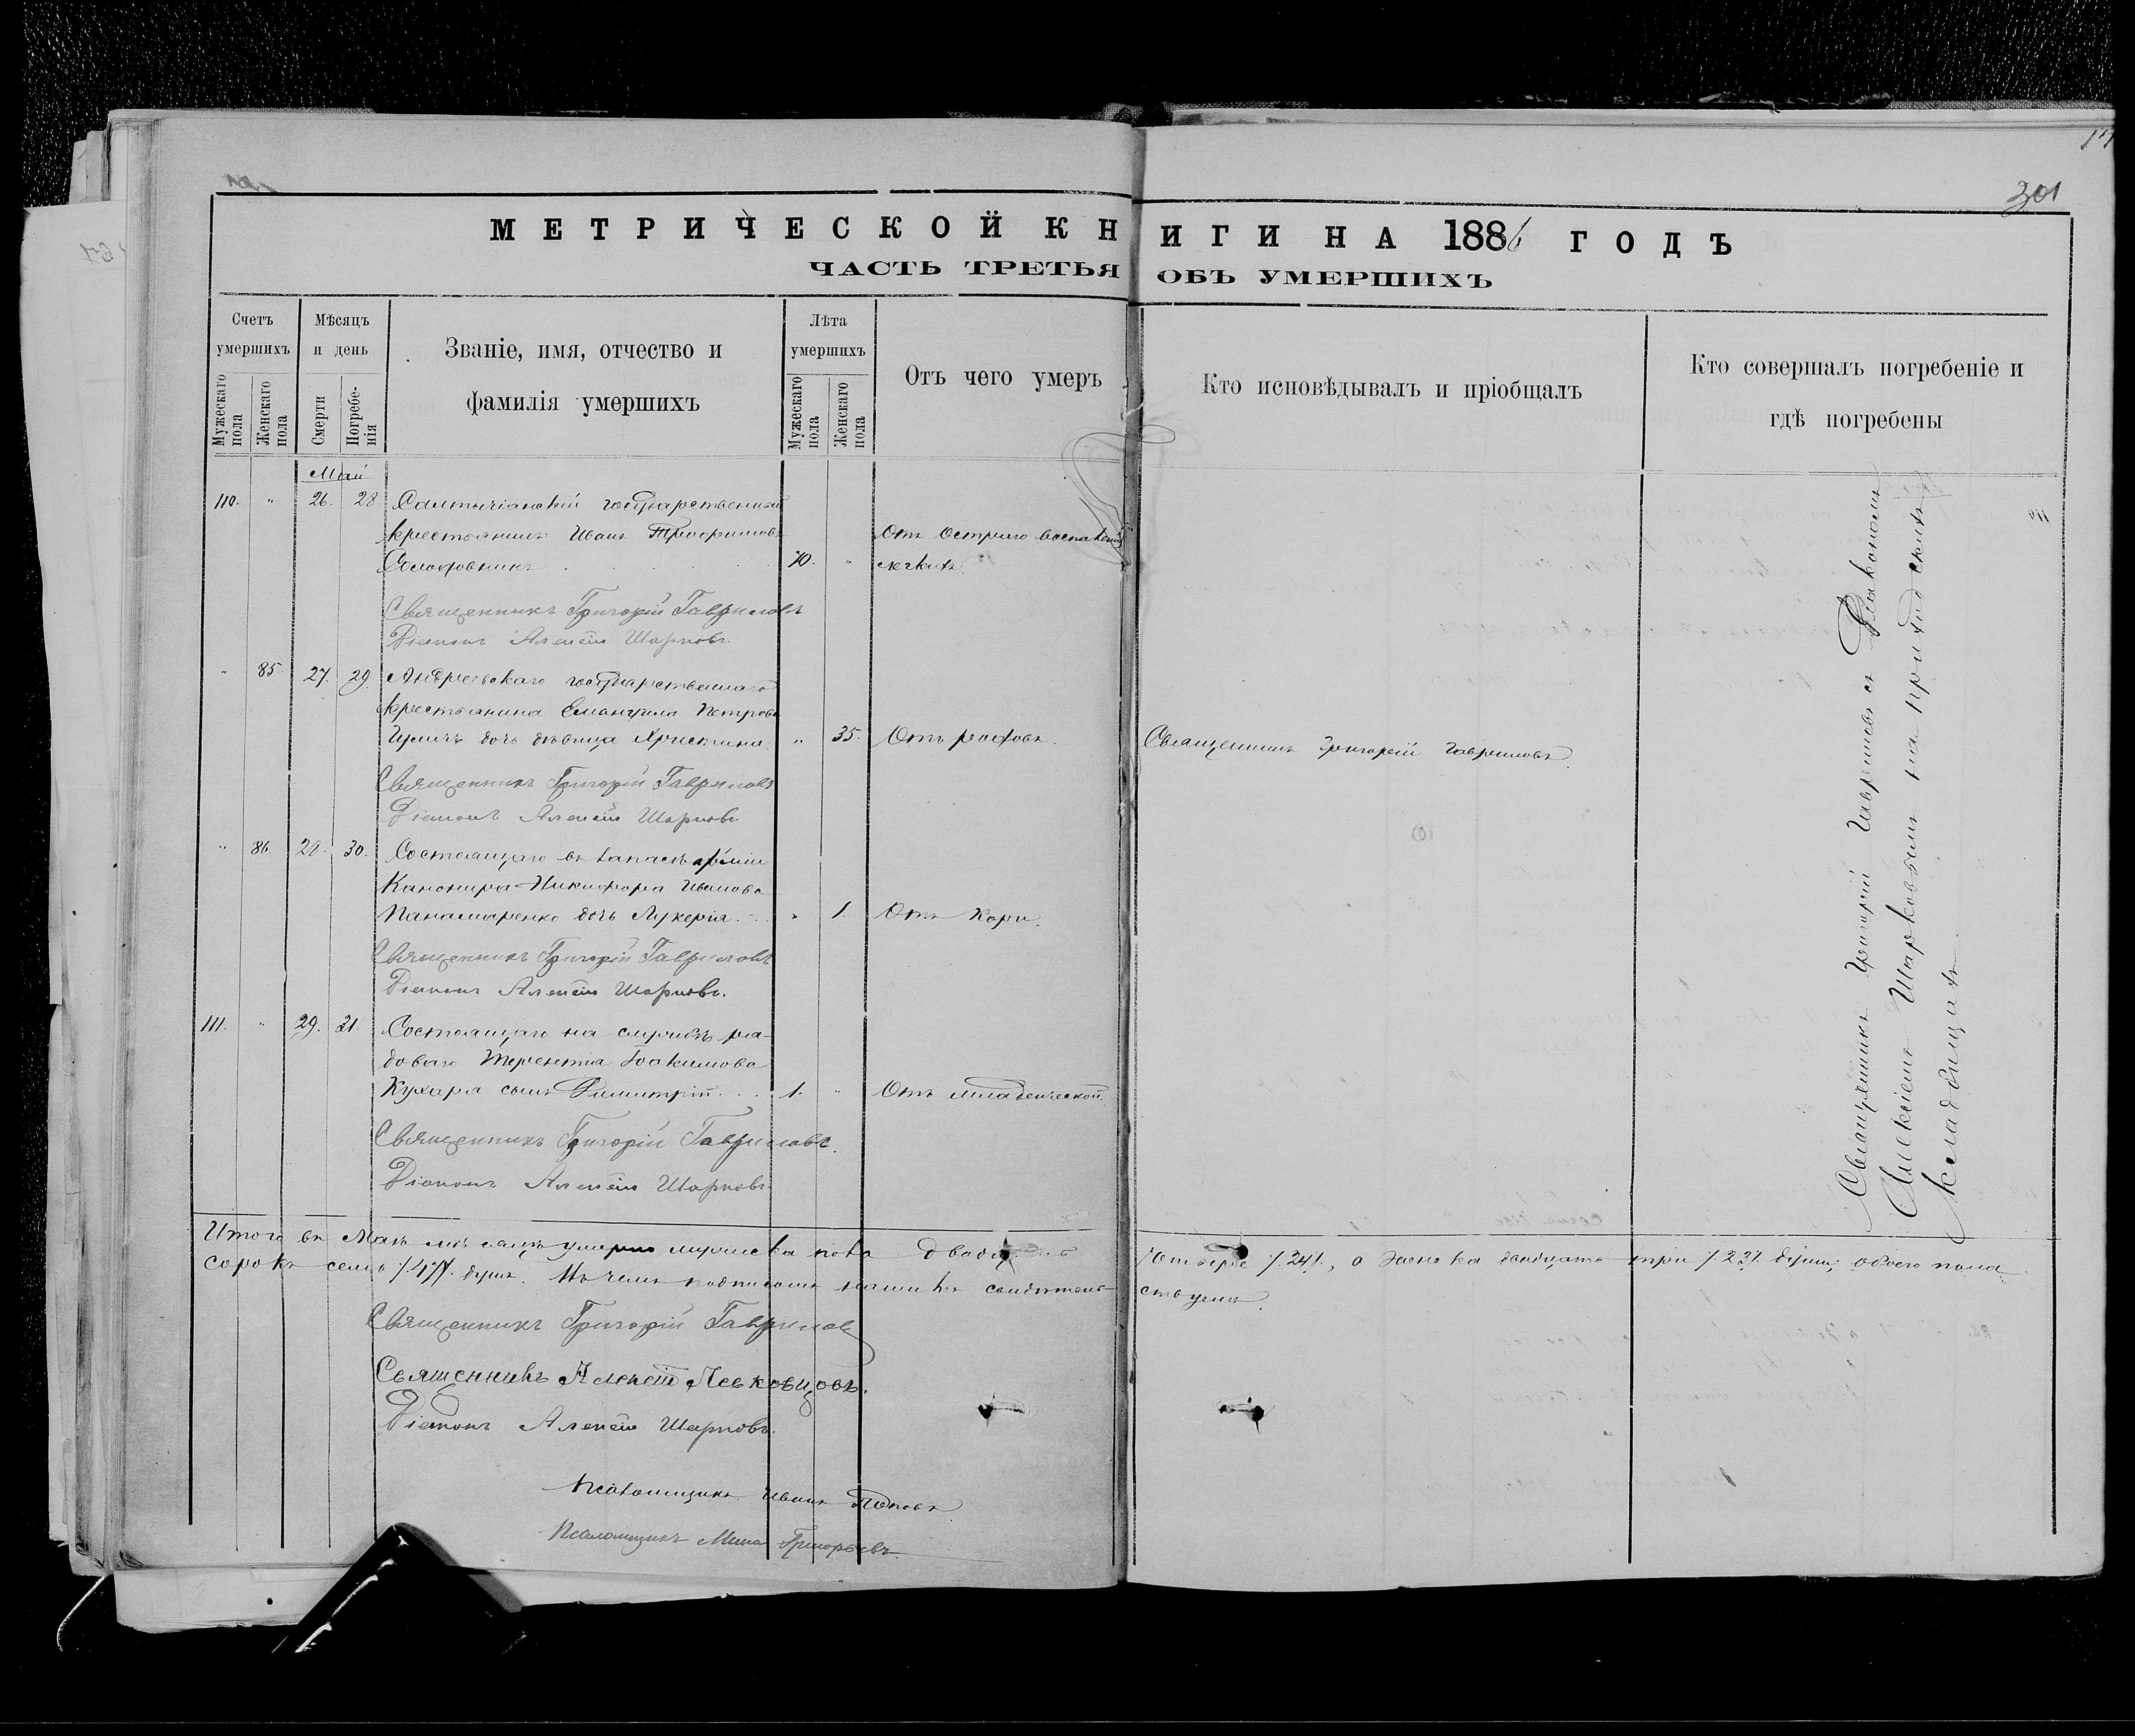 301
МЕТРИЧЕСКОЙ КНИГИ НА 1886 ГОДЪ
ЧАСТЬ ТРЕТЬЯ ОБЪ УМЕРШИХЪ
Счетъ умершихъ
Мѣсяцъ и день
Званіе, имя, отчество и фамилія умершихъ
Лѣта умершихъ
Отъ чего умеръ
Кто исповѣдывалъ и пріобщалъ
Кто совершалъ погребеніе и гдѣ погребены
Мужескаго пола
Женскаго пола
Смерти
Погребенія
Мужескаго пола
Женскаго пола
Май
110. " 26. 28 Салтычіанскій государственный
крестьянинъ Иванъ Трофимовъ Отъ остраго воспаленія
70. " легкихъ.
Священникъ Григорій Гавриловъ
Діаконъ Алексѣй Шарковъ.
" 85 27. 29. Андреевскаго государственнаго
крестьянина Емануила Петрова
дочь дѣвица Христина. " 35. Отъ родовъ. Священникъ Григорій Гавриловъ.
Священникъ Григорій Гавриловъ
Діаконъ Алексѣй Шарковъ
" 86. 28. 30. Состоящаго въ запасѣ арміи
Канонира Никифора Иванова
Панамаренко дочь Лукерія " 1. Отъ кори.
Священникъ Григорій Гавриловъ
Діаконъ Алексѣй Шарковъ.
111. " 29. 31. Состоящаго на службѣ ря-
доваго Терентія Іоакимова
Кухаря сынъ Димитрій 1. " Отъ младенческой.
Священникъ Григорій Гавриловъ.
Діаконъ Алексѣй Шарковъ
Священникъ Григорій Гавриловъ съ Діакономъ
Алексіемъ Шарковымъ на приходскихъ
кладбищахъ.
Итого въ Маѣ мѣсяцѣ умерло мужеска пола двадцать четыре /.24/., а женска двадцать три /.23/. души; обоего пола
сорокъ семь /.47/. душъ. Въ чемъ подписомъ нашимъ свидѣтельствуемъ.
Священникъ Григорій Гавриловъ
Священникъ Алексій Левковцовъ.
Діаконъ Алексѣй Шарковъ.
Псаломщикъ Иванъ Поповъ
Псаломщикъ Мина Григорьевъ